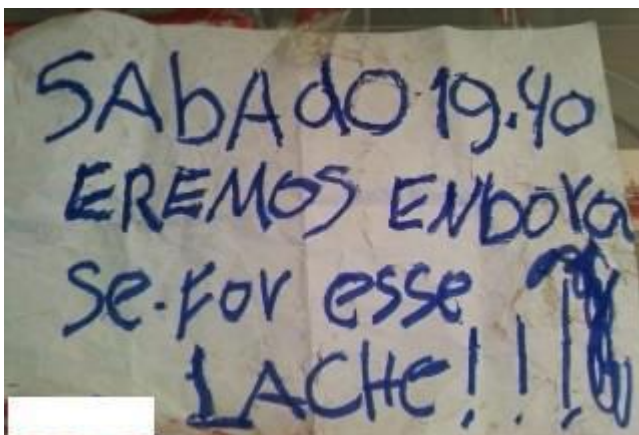 SAbAdO 19.40
EREMOS ENbORa
Se.For esse
LACHe!!!